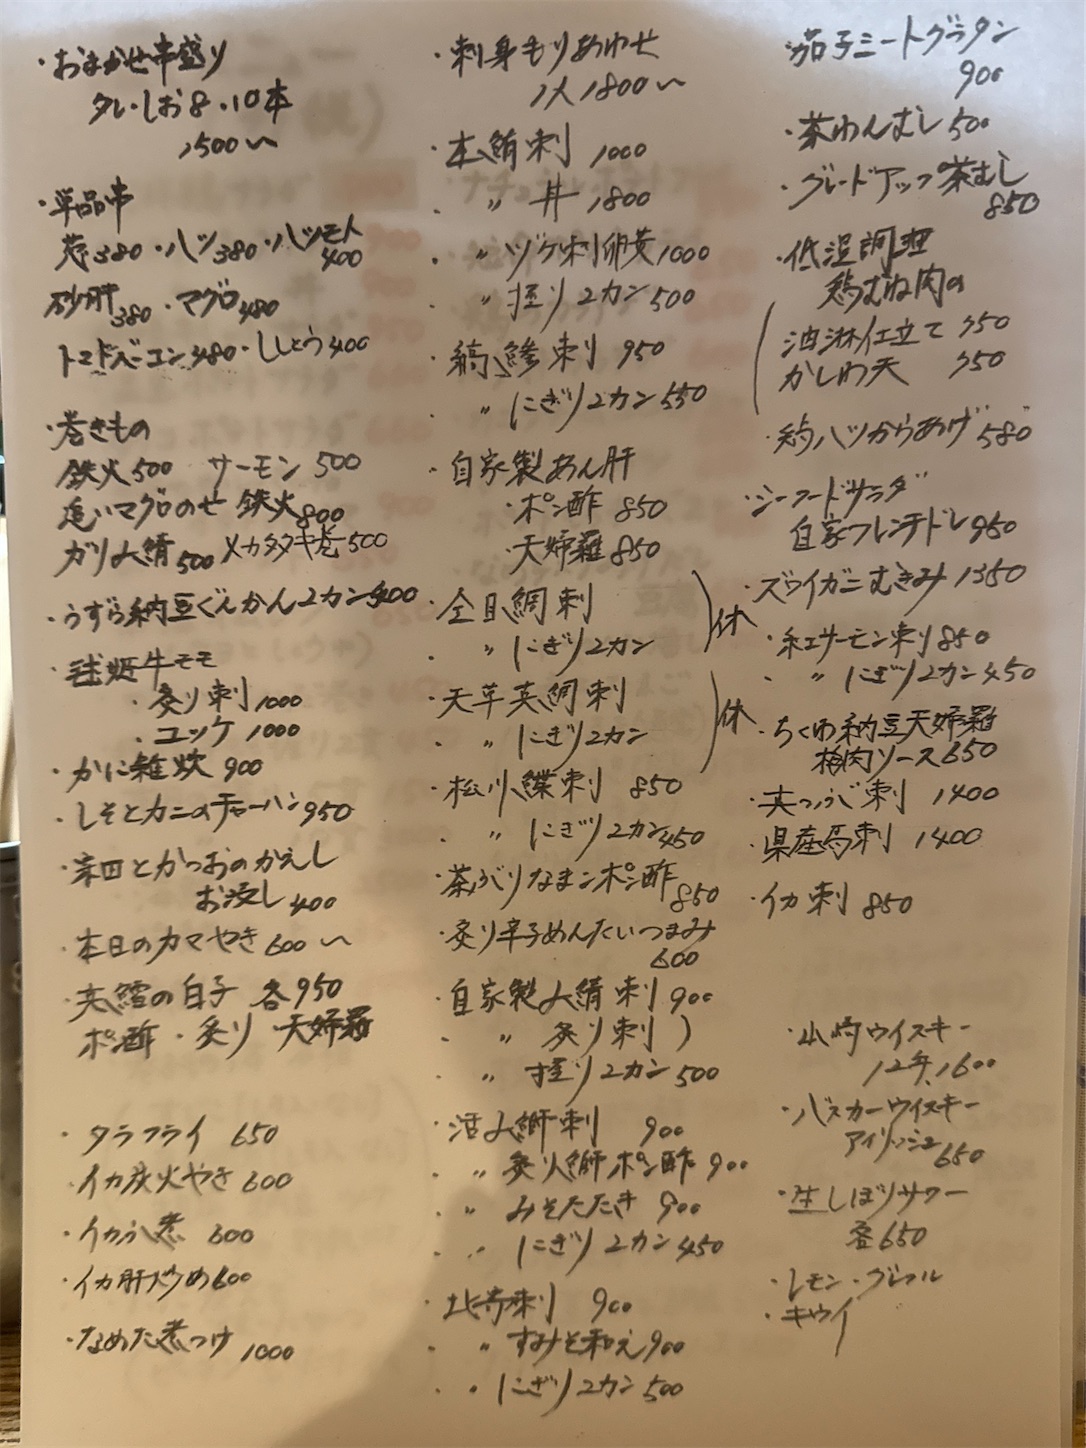 ・おまかせ串盛り
タレ・しお 8・10本
1500〜
・単品串
葱380・ハツ380・ハツモト400
砂肝380・マグロ480
トマトベーコン480・ししとう400
・巻きもの
鉄火500 サーモン500
追いマグロのせ鉄火800
ガリ〆鯖500 〆カタタキ巻500
・うずら納豆ぐんかん2カン400
牛モモ
・炙り刺1000
・ユッケ1000
・かに雑炊 900
・しそとカニのチャーハン950
・宗田とかつおのかえし
お浸し400
・本日のカマやき600〜
・真鱈の白子 各950
ポン酢・炙り・天婦羅
・タラフライ 650
・イカ炭火やき600
・イカ煮 600
・イカ肝炒め600
・なめた煮つけ1000
・刺身もりあわせ
1人1800〜
・本鮪刺 1000
・〃 丼 1800
・〃 ヅケ刺卵黄1000
・〃 握り2カン500
・縞鯵刺 950
・〃 にぎり2カン550
・自家製あん肝
・ポン酢 850
・天婦羅850
・金目鯛刺
・〃 にぎり2カン
休
・天草真鯛刺
・〃 にぎり2カン
休
・松川鰈刺 850
・〃 にぎり2カン450
・茶ぶりなまこポン酢
850
・炙り辛子めんたいつまみ
600
・自家製〆鯖刺900
・〃 炙り刺 〃
・〃 握り2カン500
・活〆鰤刺 900
・〃 炙り鰤ポン酢900
・〃 みそたたき 900
・〃 にぎり2カン450
・北寄刺 900
・〃 すみそ和え900
・〃 にぎり2カン500
・茄子ミートグラタン
900
・茶わんむし500
・グレードアップ茶むし
850
・低温調理
鶏むね肉の
油淋仕立て 750
かしわ天 750
・ハツからあげ580
・シーフードサラダ
自家フレンチドレ950
・ズワイガニむきみ1350
・紅サーモン刺850
・〃 にぎり2カン450
・ちくわ納豆天婦羅
梅肉ソース650
・真つぶ刺 1400
・県産馬刺 1400
・イカ刺 850
・山崎ウイスキー
12年 1600
・バスカーウイスキー
アイリッシュ650
・生しぼりサワー
各650
・レモン・グレフル
・キウイ